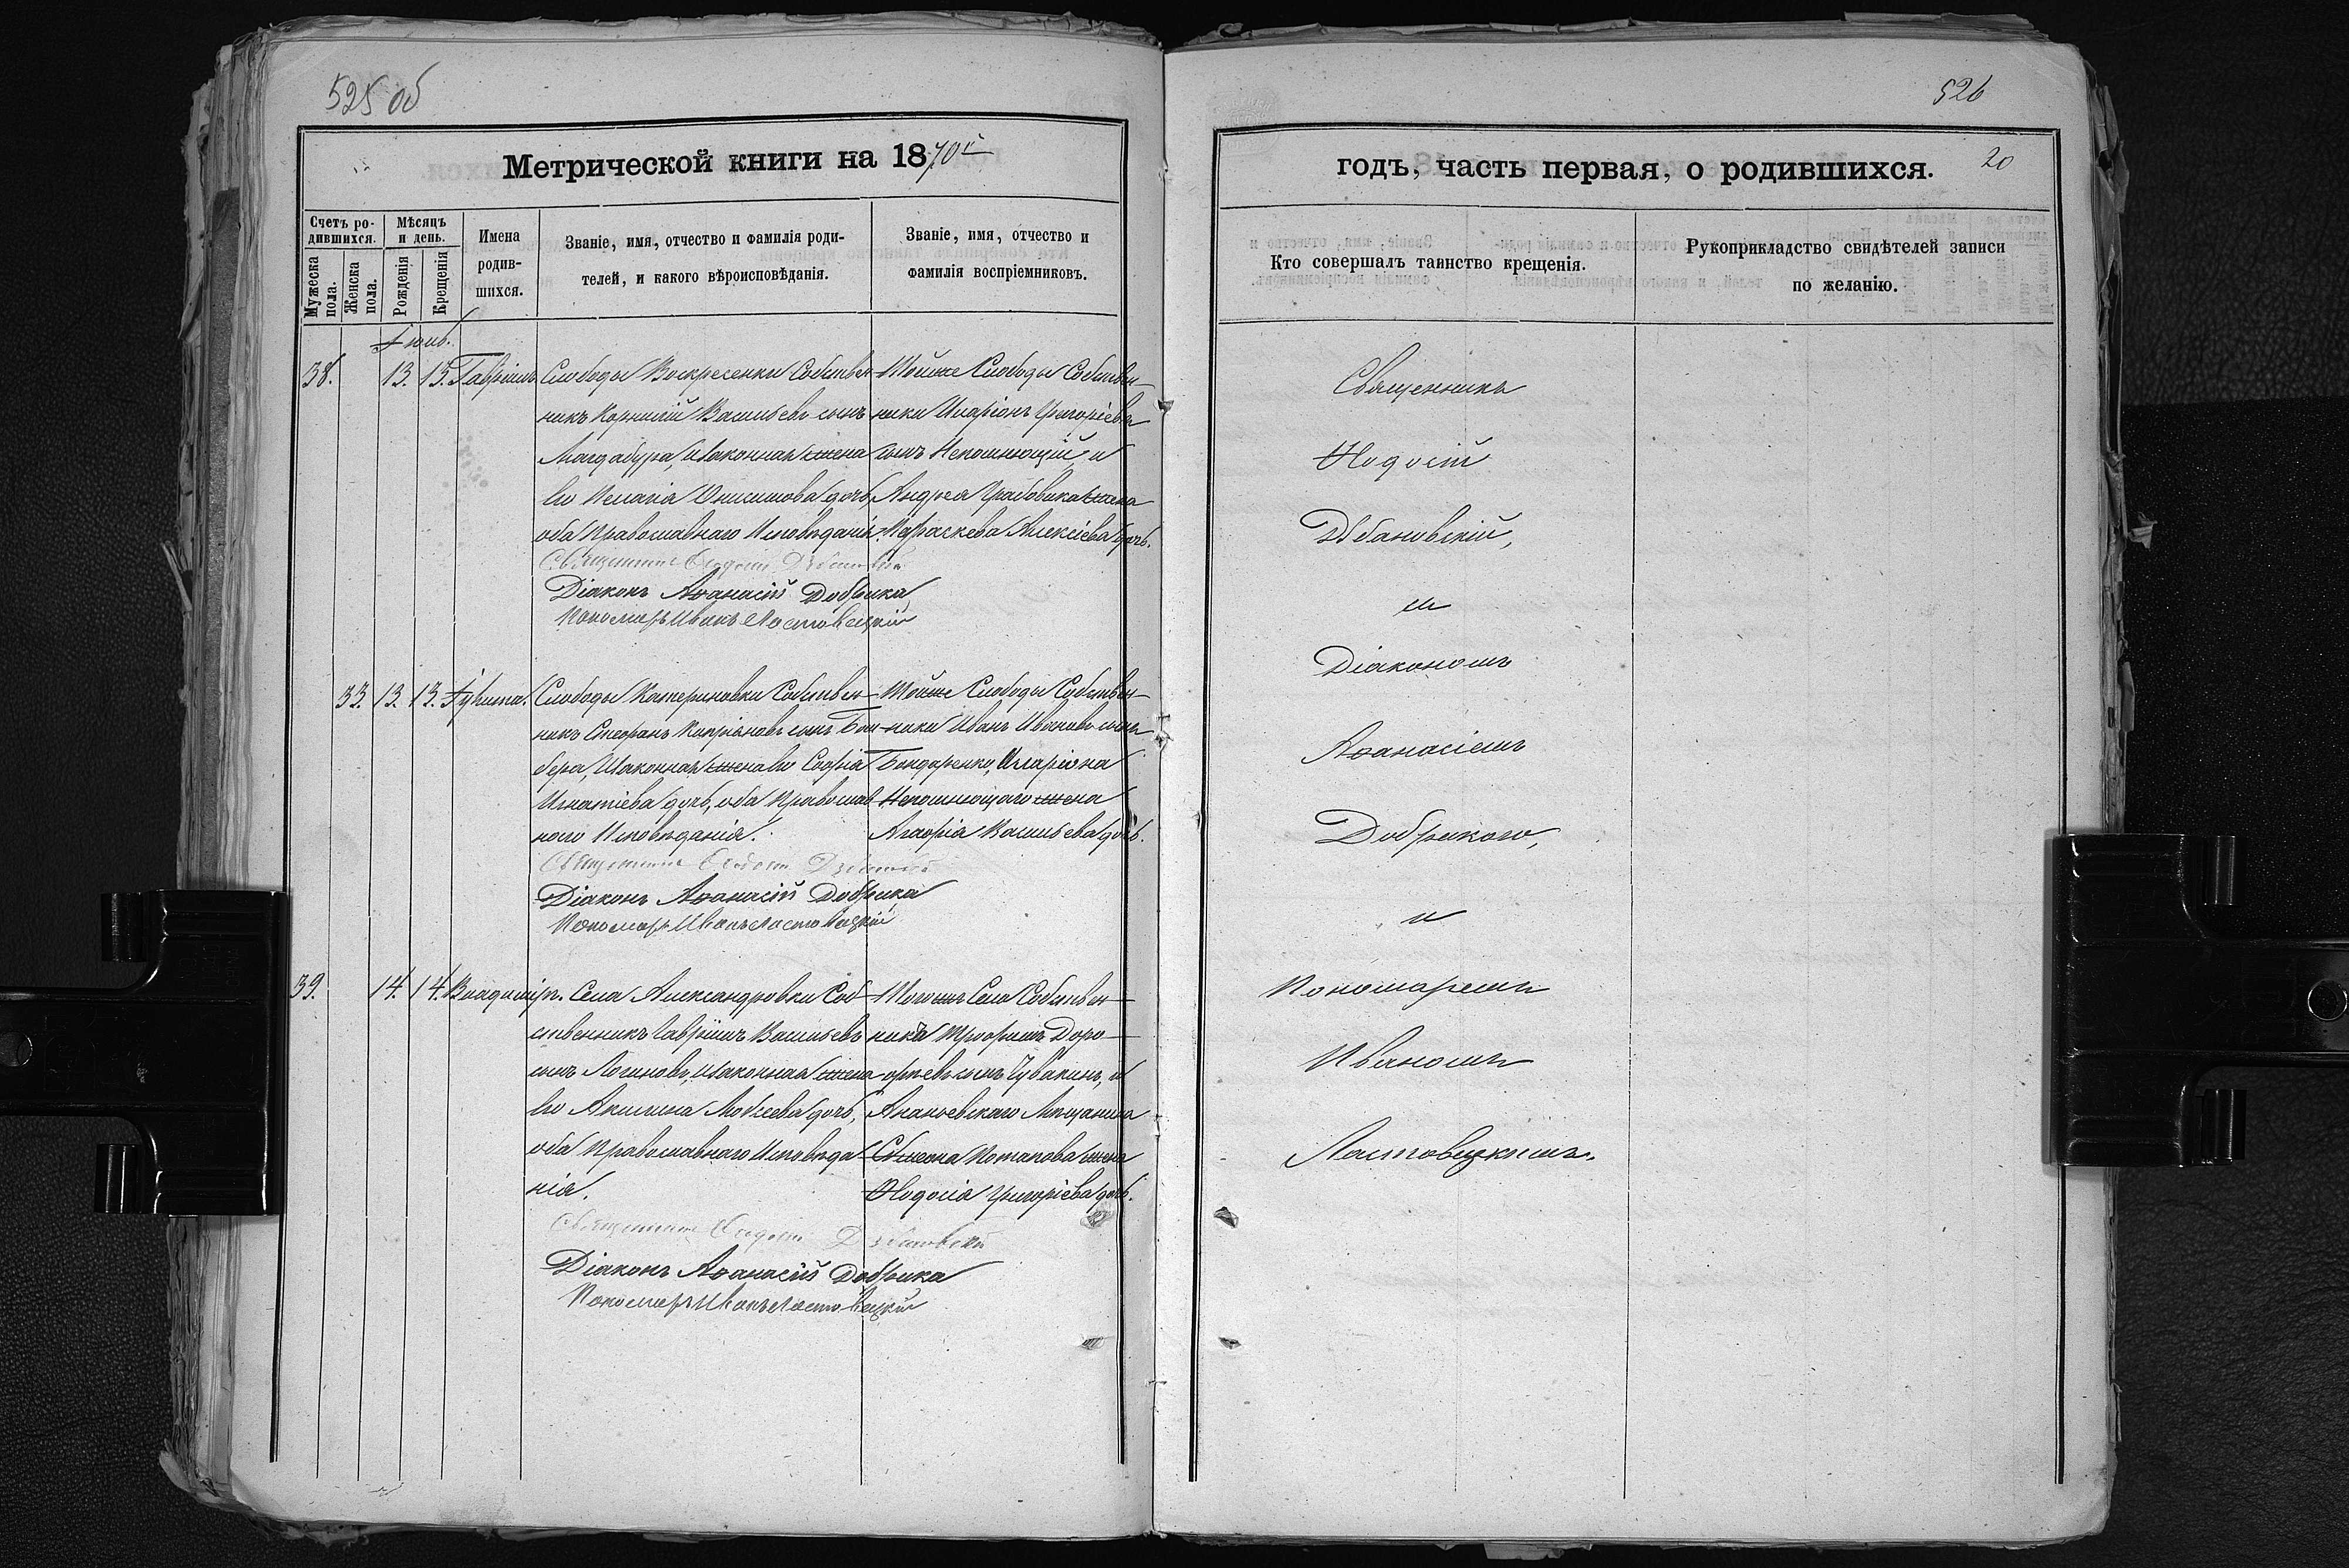 525 об
Метрической книги на 1870й
Счетъ родившихся.
Мѣсяцъ и день.
Мужеска пола.
Женска пола.
Рожденія
Крещенія
Имена родившихся.
Званіе, имя, отчество и фамилія родителей, и какого вѣроисповѣданія.
Званіе, имя, отчество и фамилія воспріемниковъ.
Іюль.
38. 13. 13. Гавріилъ
Слободы Воскресенки Собствен-
никъ Корнилій Васильевъ сынъ
Магдабура, и законная жена
его Пелагія Онисимова дочь,
оба Православнаго Исповѣданія.
Тойже Слободы Собствен-
ники Иларіонъ Григоріевъ
сынъ Непомнющій, и
Андрея Грабовика жена
Параскева Алексіева дочь.
Священникъ Ѳеодосій
Діаконъ Аѳанасій Добрика
Пономарь Иванъ Ластовецкій
33. 13. 13. Іулитта.
Слободы Катериновки Собствен-
никъ Стефанъ Кипріановъ сынъ
и законная жена его Софія
Игнатіева дочь, оба Православ
наго Исповѣданія.
Тойже Слободы Собствен-
ники Иванъ Ивановъ сынъ
Бондаренко, Иларіона
Непомнющаго жена
Агафія Васильева дочь.
Священникъ Ѳеодосій
Діаконъ Аѳанасій Добрика
Пономарь Иванъ Ластовецкій
39. 14. 14. Владиміръ.
Села Александровки Соб-
ственникъ Гавріилъ Васильевъ
сынъ Логиновъ, и законная жена
его Акилина Моѵсеева дочь,
оба Православнаго Исповѣда-
нія.
Тогожъ Села Собствен-
ника Трофимъ Доро-
феевъ сынъ Чувакинъ, и
Ананьевскаго Мѣщанина
Сѵмеона Потапова жена
Ѳеодосія Григоріева дочь.
Священникъ Ѳеодосій
Діаконъ Аѳанасій Добрика
Пономарь Иванъ Ластовецкій
526
годъ, часть первая, о родившихся.
20
Кто совершалъ таинство крещенія.
Рукоприкладство свидѣтелей записи по желанію.
Священникъ
Ѳеодосій
Дзбановскій,
и
Діакономъ
Аѳанасіемъ
Добрикою,
и
Пономаремъ
Иваномъ
Ластовецкимъ.